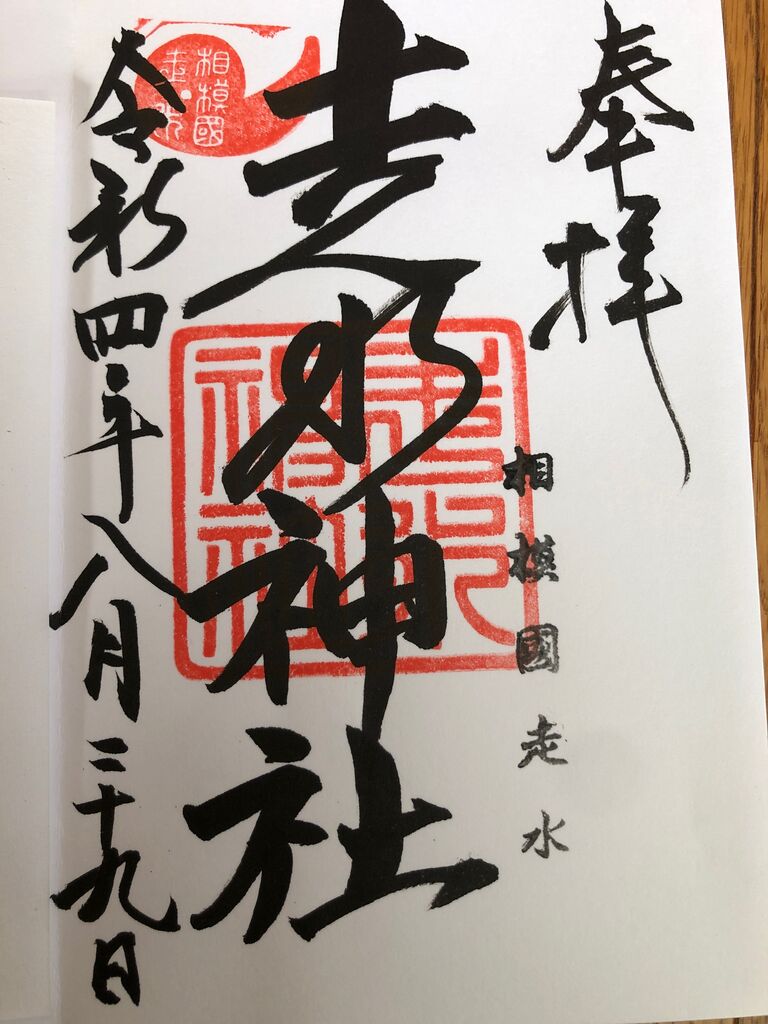 奉拝
相模國走水
走水神社
走水神社
相模國
走水
令和四年八月二十九日